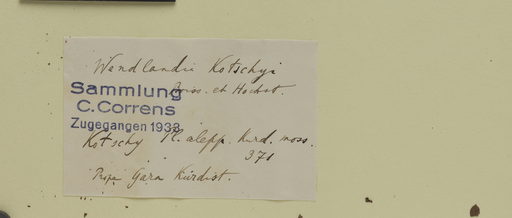 Wendlandii Kotschyi
Boiss. et Hochst.
Sammlung
C. Correns
Zugegangen 1933
Kotschy Pl. alepp. kurd. moss.
371
Prope Gara Kurdist.